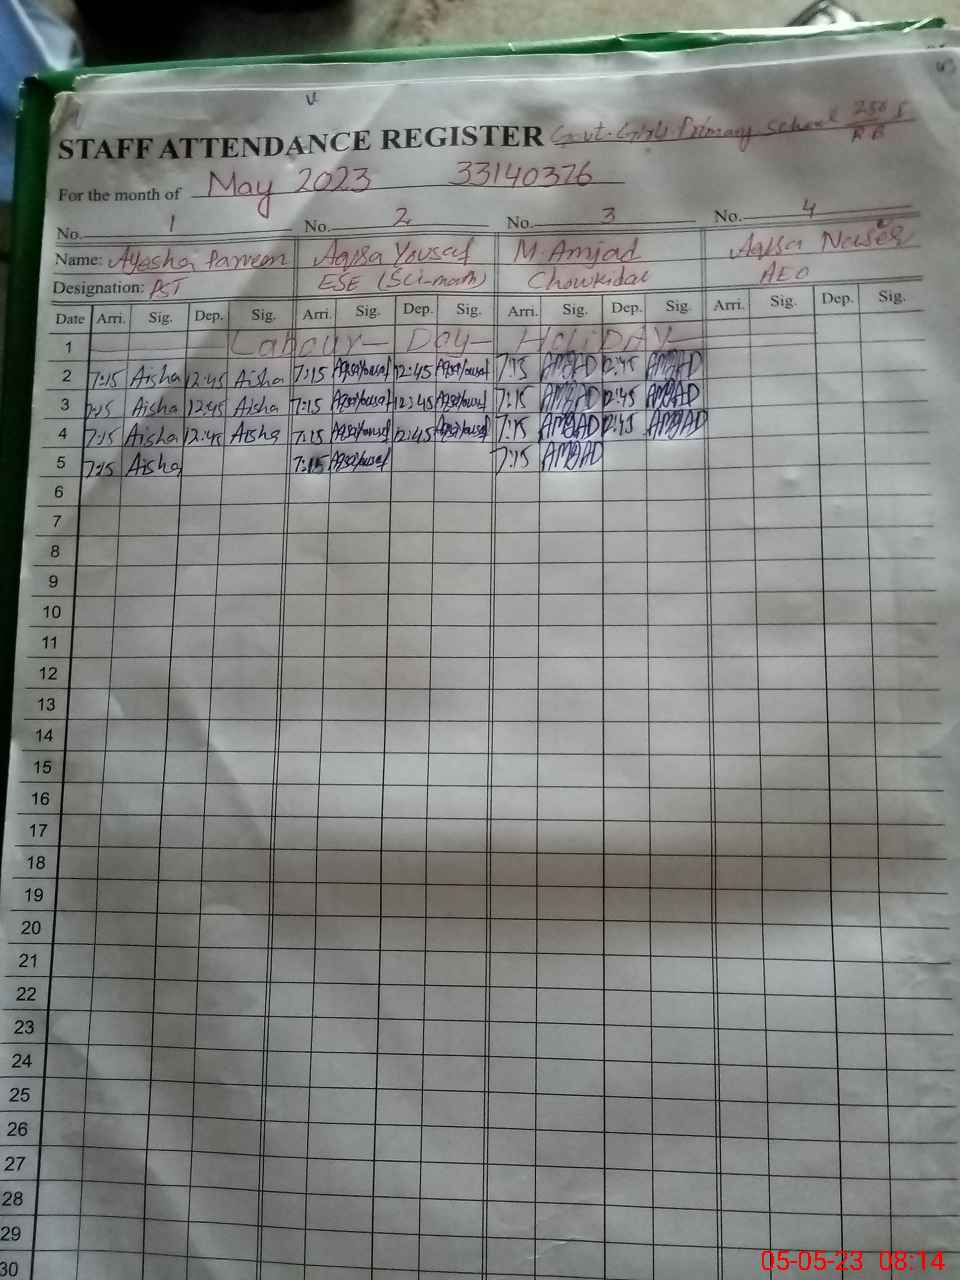 STAFF ATTENDANCE REGISTER Govt. Girls Primary School 258 R B
For the month of May 2023 33140376
No. 1 No. 2 No. 3 No. 4
Name: Ayesha Parveen Aqsa Yousaf M. Amjad Aqsa
Designation: PST ESE (Sci-math) Chowkidar AEO
Date Arri. Sig. Dep. Sig. Arri. Sig. Dep. Sig. Arri. Sig. Dep. Sig. Arri. Sig. Dep. Sig.
1 Labour - Day - HoliDAY
2 7:15 Aisha 12:45 Aisha 7:15 Aqsa Yousaf 12:45 Aqsa Yousaf 7:15 AMJAD 12:45 AMJAD
3 7:15 Aisha 12:45 Aisha 7:15 Aqsa Yousaf 12:45 Aqsa Yousaf 7:15 AMJAD 12:45 AMJAD
4 7:15 Aisha 12:45 Aisha 7:15 Aqsa Yousaf 12:45 Aqsa Yousaf 7:15 AMJAD 12:45 AMJAD
5 7:15 Aisha 7:15 Aqsa Yousaf 7:15 AMJAD
6
7
8
9
10
11
12
13
14
15
16
17
18
19
20
21
22
23
24
25
26
27
28
29
30
05-05-23 08:14